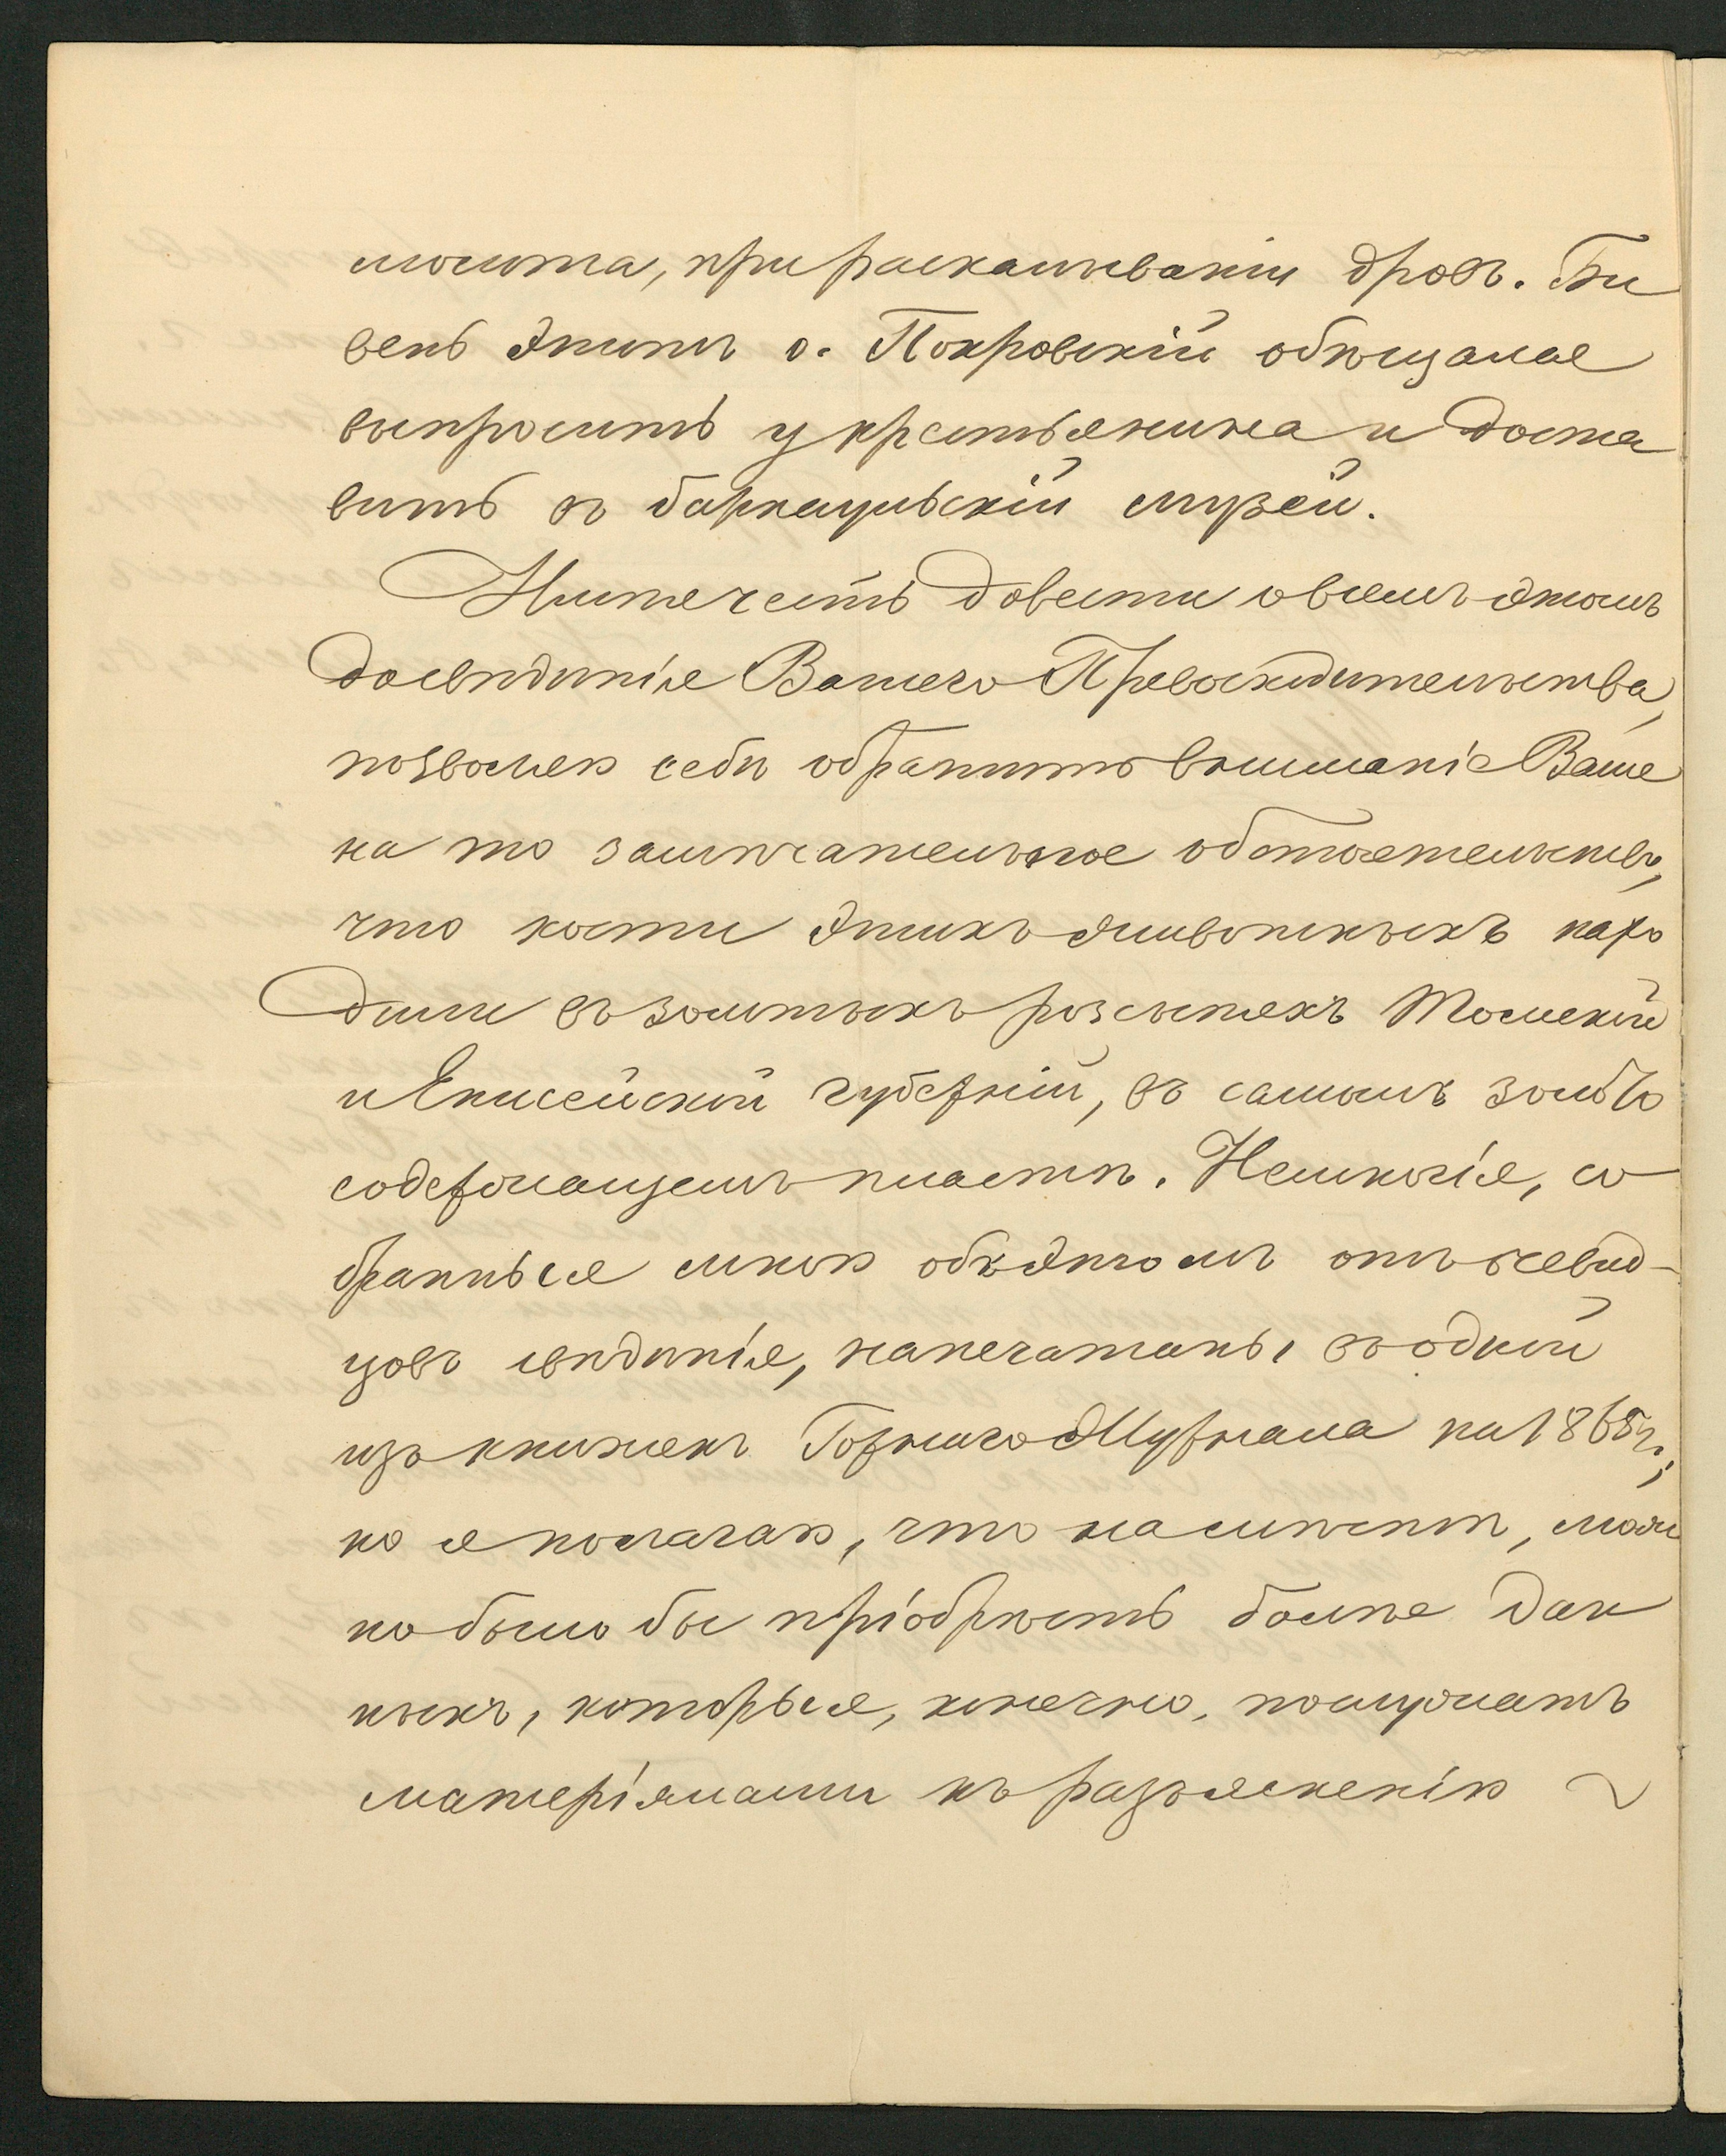 молота, при раскалываніи дровъ. Би
вень этотъ о. Покровскій обѣщался
выпросить у крестьянина и доста
вить въ барнаульскій музей.
Имѣя честь довести о всемъ этомъ
до свѣдѣнія Вашего Превосходительства,
позволяю себѣ обратить вниманіе Ваше
на то замѣчательное обстоятельство,
что кости этихъ животныхъ нахо
дили въ золотыхъ розсыпяхъ Томской
и Енисейской губерній, въ самомъ золото
содержащемъ пластѣ. Немногія, со
бранныя мною объ этомъ отъ очевид-
цовъ свѣдѣнія, напечатаны въ одной
изъ книжекъ Горнаго Журнала на 1868 г.;
но я полагаю, что на мѣстѣ, мож
но было бы пріобрѣсть болѣе дан
ныхъ, которыя, конечно, послужатъ
матеріялами къ разъясненію